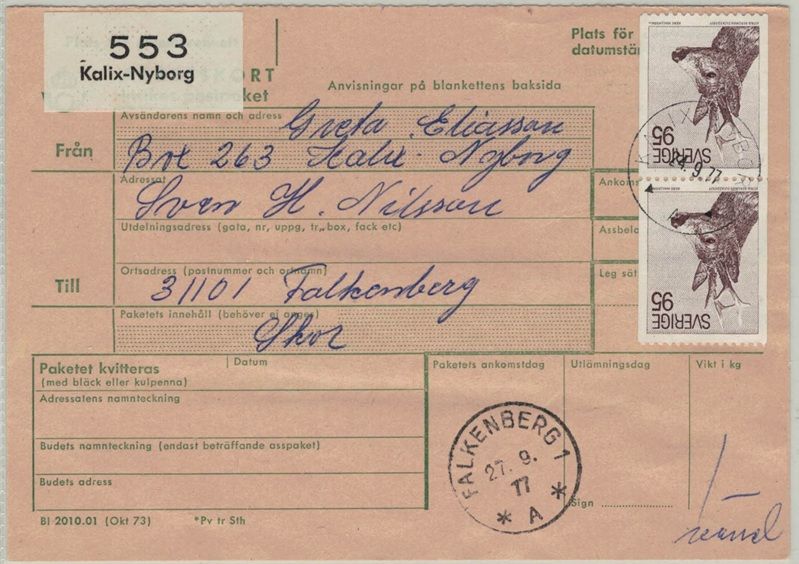 553
Kalix-Nyborg
KORT
ket
Anvisningar på blankettens baksida
Plats för
datumstäm
Från
Avsändarens namn och adress
Greta Eliasson
Box 263 Kalix-Nyborg
Adressat
Sven H. Nilsson
Ankoms
Utdelningsadress (gata, nr, uppg, tr, box, fack etc)
Assbela
Till
Ortsadress (postnummer och ortnamn)
31101 Falkenberg
Leg sät
Paketets innehåll (behöver ej anges)
Skor
SVERIGE
95
24.9.77
SVERIGE
95
Paketet kvitteras
(med bläck eller kulpenna)
Datum
Paketets ankomstdag
Utlämningsdag
Vikt i kg
Adressatens namnteckning
Budets namnteckning (endast beträffande asspaket)
Budets adress
FALKENBERG 1
27. 9.
77
* A *
Sign
Bl 2010.01 (Okt 73)
*Pv tr Sth